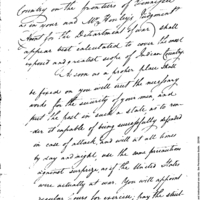 Country on the frontiers of Tennessee
as in your and Mr. Henley's Judgment
for the Department of War shall
appear best calculated to cover the most
exposed and greatest scope of Indian Country.
As soon as a proper place shall
be found on you will erect the necessary
works for the security of your men and
put the post in such a state as to ren-
der it capable of being successfully defended
in case of attack, and will at all times
by day and night, use the same precaution
against surprize as if the United States
were actually at war. You will appoint
regular hours for exercise, pay the strict-